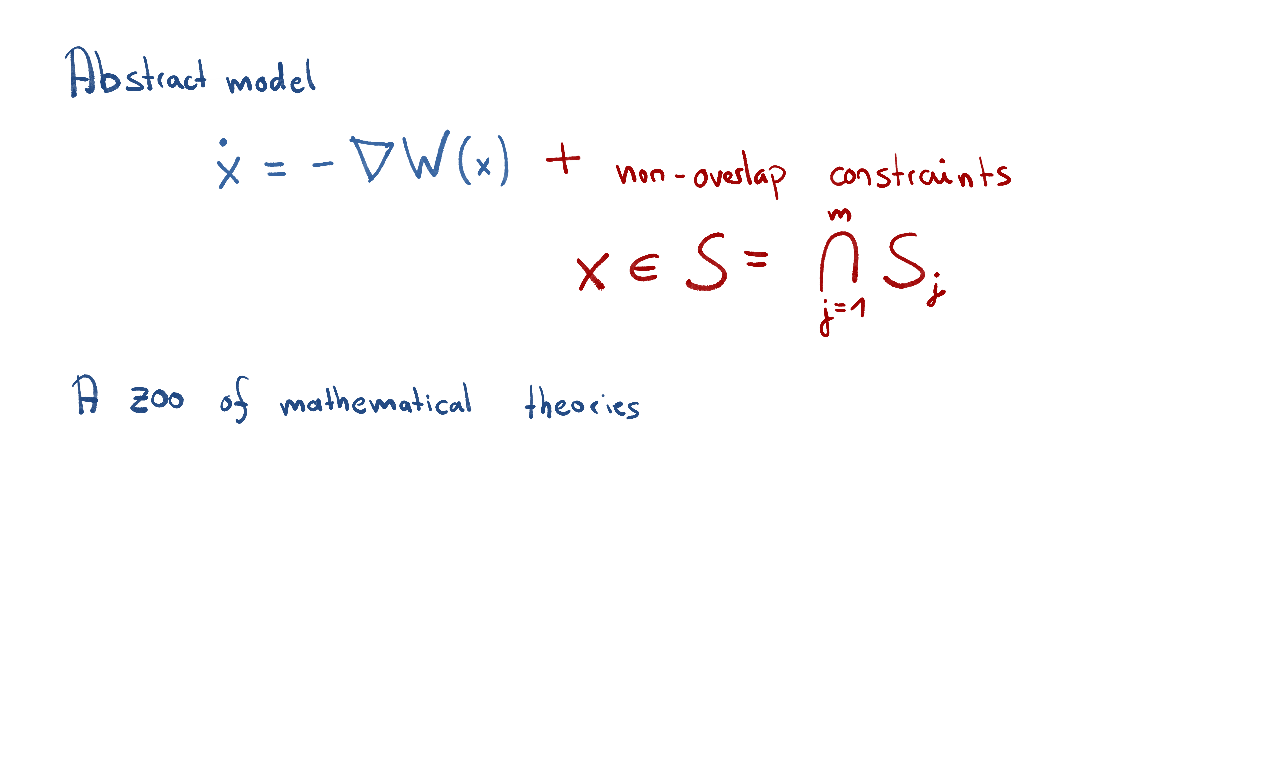 Abstract model
ẋ = - ∇W(x) + non-overlap constraints
x ∈ S = ⋂_{j=1}^{m} S_j
A zoo of mathematical theories